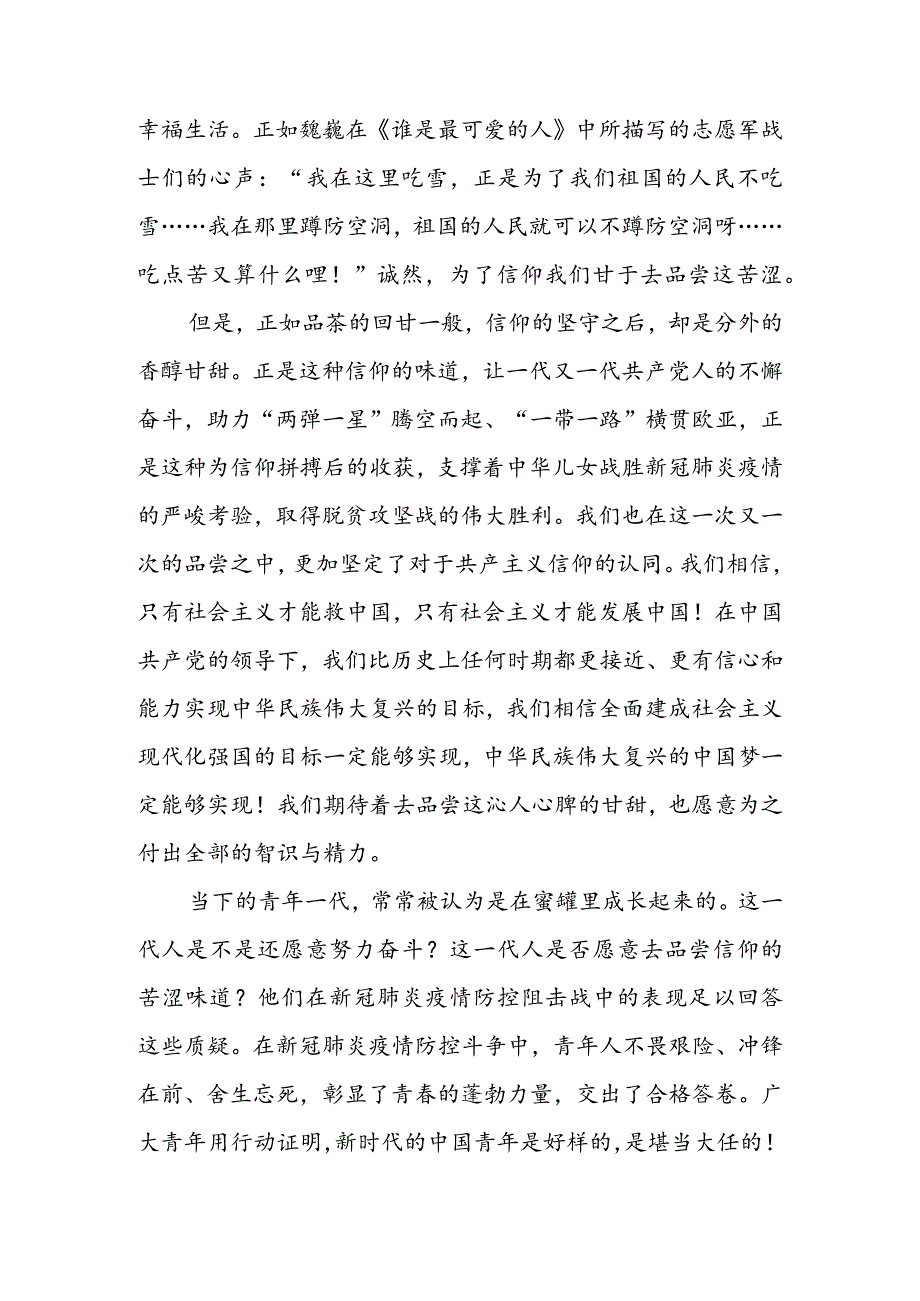 幸福生活。正如魏巍在《谁是最可爱的人》中所描写的志愿军战
士们的心声：“我在这里吃雪，正是为了我们祖国的人民不吃
雪……我在那里蹲防空洞，祖国的人民就可以不蹲防空洞呀……
吃点苦又算什么哩！”诚然，为了信仰我们甘于去品尝这苦涩。
但是，正如品茶的回甘一般，信仰的坚守之后，却是分外的
香醇甘甜。正是这种信仰的味道，让一代又一代共产党人的不懈
奋斗，助力“两弹一星”腾空而起、“一带一路”横贯欧亚，正
是这种为信仰拼搏后的收获，支撑着中华儿女战胜新冠肺炎疫情
的严峻考验，取得脱贫攻坚战的伟大胜利。我们也在这一次又一
次的品尝之中，更加坚定了对于共产主义信仰的认同。我们相信，
只有社会主义才能救中国，只有社会主义才能发展中国！在中国
共产党的领导下，我们比历史上任何时期都更接近、更有信心和
能力实现中华民族伟大复兴的目标，我们相信全面建成社会主义
现代化强国的目标一定能够实现，中华民族伟大复兴的中国梦一
定能够实现！我们期待着去品尝这沁人心脾的甘甜，也愿意为之
付出全部的智识与精力。
当下的青年一代，常常被认为是在蜜罐里成长起来的。这一
代人是不是还愿意努力奋斗？这一代人是否愿意去品尝信仰的
苦涩味道？他们在新冠肺炎疫情防控阻击战中的表现足以回答
这些质疑。在新冠肺炎疫情防控斗争中，青年人不畏艰险、冲锋
在前、舍生忘死，彰显了青春的蓬勃力量，交出了合格答卷。广
大青年用行动证明，新时代的中国青年是好样的，是堪当大任的！